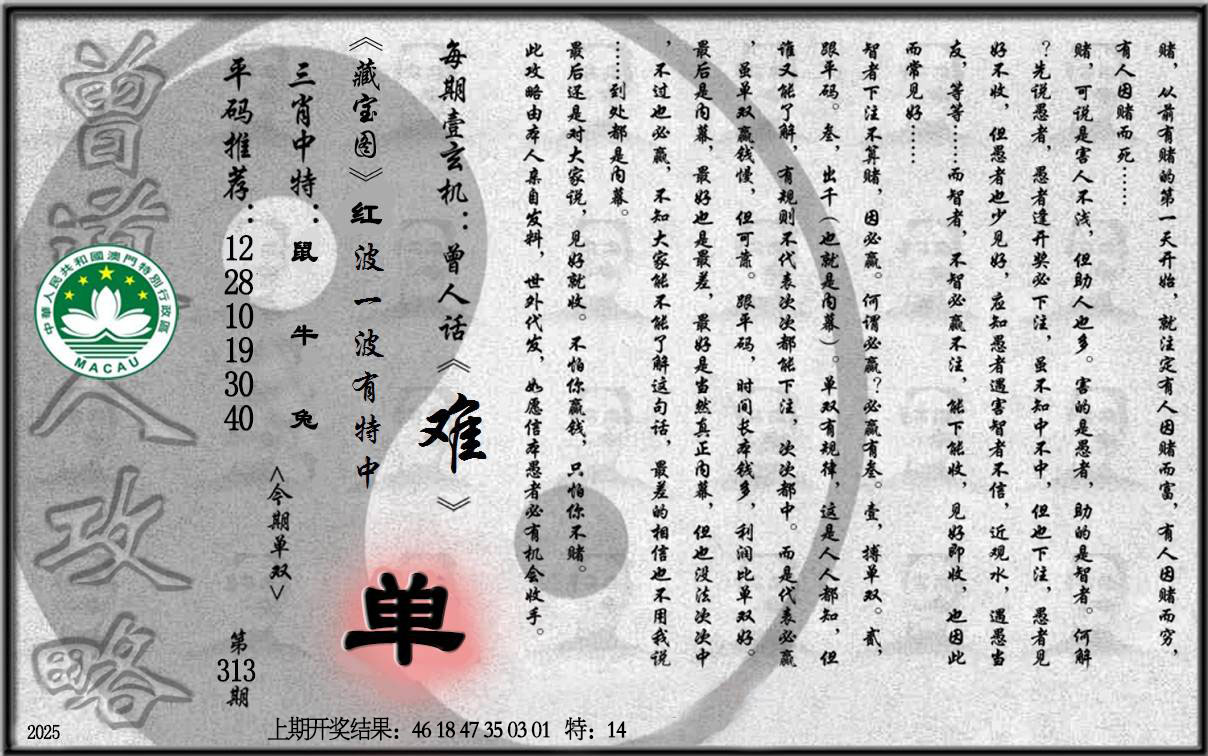 赌，从前有赌的第一天开始，就注定有人因赌而富，有人因赌而穷，
有人因赌而死……
赌，可说是害人不浅，但助人也多。害的是愚者，助的是智者。何解
？先说愚者，愚者逢开奖必下注，虽不知中不中，但也下注，愚者见
好不收，但愚者也少见好，应知愚者遇害智者不信，近观水，遇愚当
友，等等……而智者，不智必赢不注，能下能收，见好即收，也因此
而常见好……
智者下注不算赌，因必赢。何谓必赢？必赢有叁。壹，搏单双。贰，
跟平码。叁，出千（也就是内幕）。单双有规律，这是人人都知，但
谁又能了解，有规则不代表次次都能下注，次次都中。而是代表必赢
，虽单双赢钱慢，但可靠。跟平码，时间长本钱多，利润比单双好。
最后是内幕，最好也是最差，最好是当然真正内幕，但也没法次次中
，不过也必赢，不知大家能不能了解这句话，最差的相信也不用我说
……到处都是内幕。
最后还是对大家说，见好就收。不怕你赢钱，只怕你不赌。
此攻略由本人亲自发料，世外代发，如愿信本愚者必有机会收手。
每期壹玄机：曾人话《难》
《藏宝图》红波一波有特中
单
三肖中特：鼠 牛 兔
<今期单双>
平码推荐：12 28 10 19 30 40
第313期
曾道人攻略
中華人民共和國澳門特別行政區
MACAU
2025
上期开奖结果：46 18 47 35 03 01 特：14